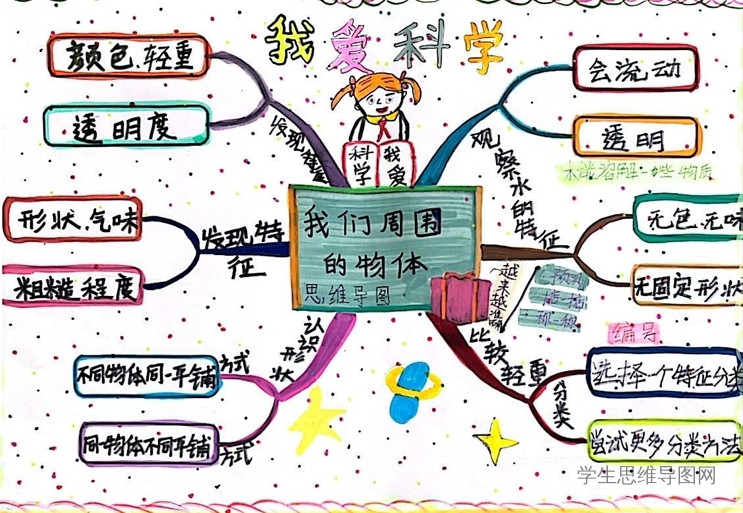 我爱科学
颜色、轻重
透明度
发现
科学
我爱
会流动
透明
水能溶解一些物质
观察水的特征
形状、气味
粗糙程度
发现特征
我们周围
的物体
思维导图
无色、无味
无固定形状
越来越准确
预测
掂一掂
称一称
比较轻重
编号
认识形状
不同物体同一平铺方式
同一物体不同平铺方式
分类
选择一个特征分类
尝试更多分类方法
学生思维导图网